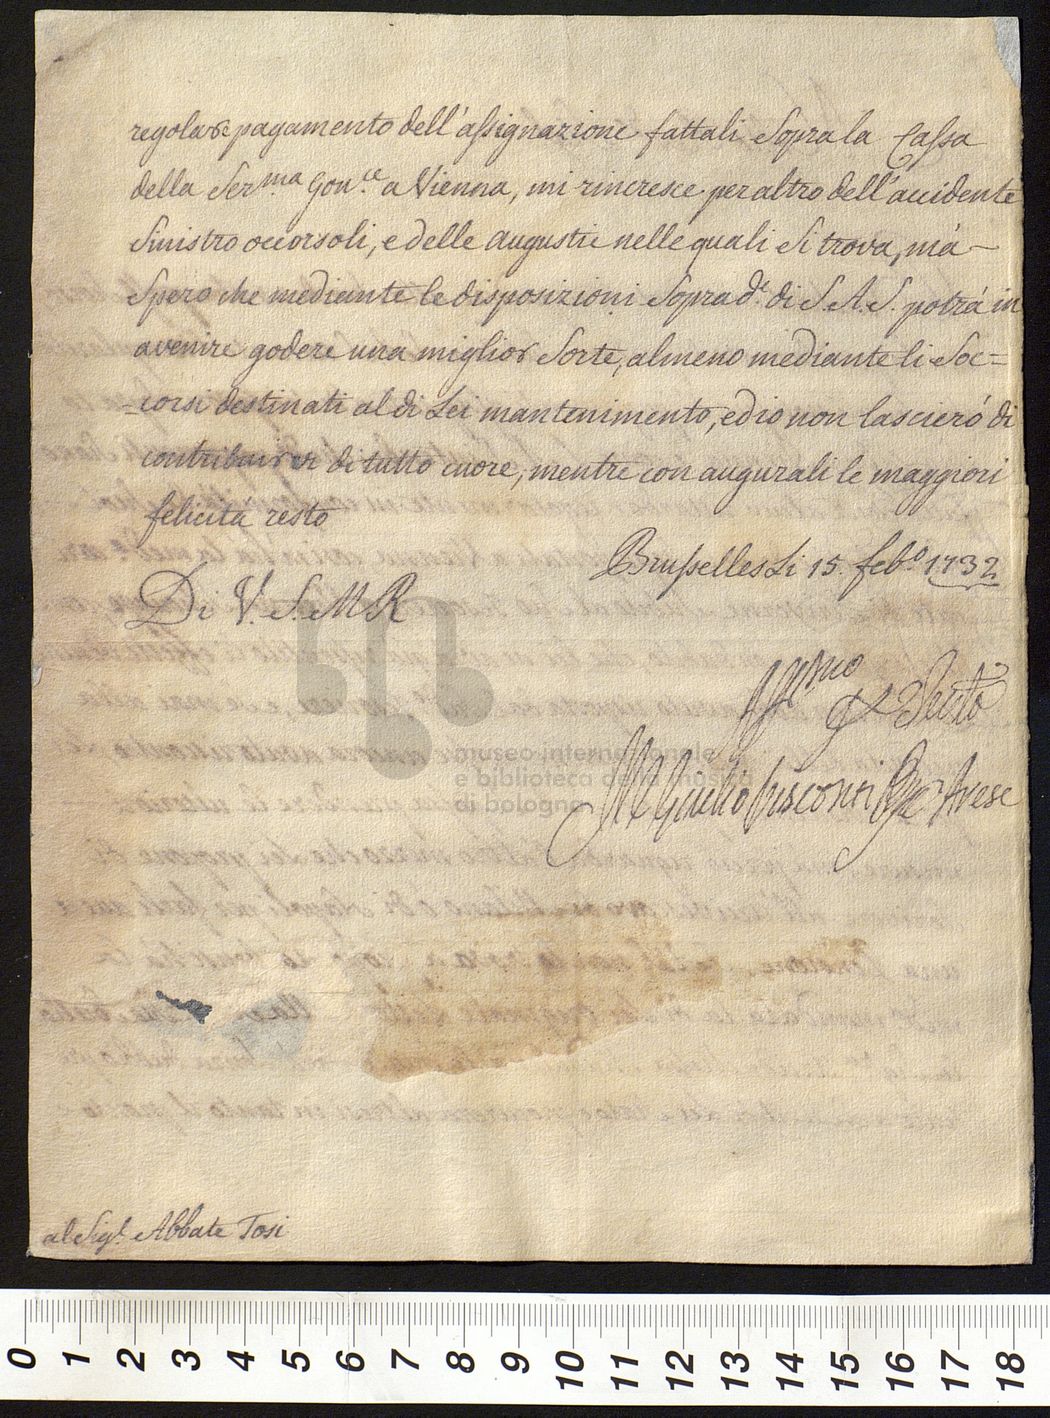 regolare pagamento dell'assignazione fattali Sopra la Cassa
della Ser.ma Gou.ce a Vienna, mi rincresce per altro dell'accidente
Sinistro occorsoli, e delle augustie nelle quali Si trova, má
Spero che mediante le disposizioni Soprad.e di S. A. S. potrá in
avenire godere una miglior Sorte, almeno mediante li Soc=
=corsi destinati al di Lei mantenimento, ed io non lascieró di
contribuirvi di tutto cuore, mentre con augurali le maggiori
felicitá resto
Brusselles Li 15. feb.o 1732
Di V. S. M R
Aff.mo
Giulio Visconti Arese
al Sig.r Abbate Tosi
museo internazionale
e biblioteca della musica
di bologna
0 1 2 3 4 5 6 7 8 9 10 11 12 13 14 15 16 17 18